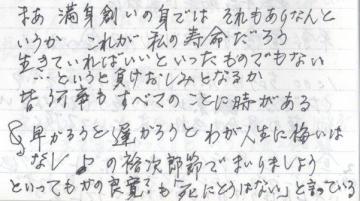 まあ 満身創いの身では それもあらなんと
いうか これが 私の寿命だろう
生きていればいいといったものでもない
…というと負けおしみとなるか
皆 何事も すべてのことに時がある
早かろうと遅かろうと わが人生に悔いは
なし♪の裕次郎節でまいりましよう
といってもかの良寛さも「死にとうはない」と言っている